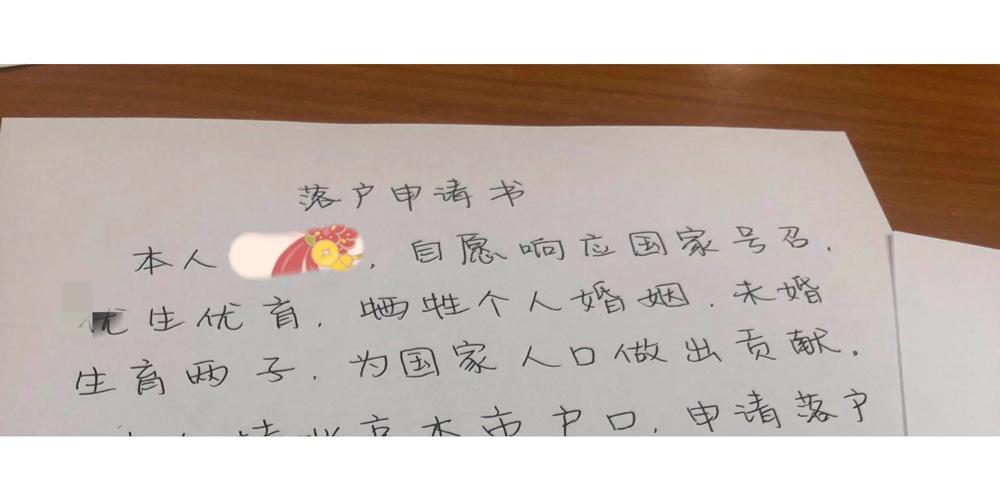 落户申请书
本人 ,自愿响应国家号召,
优生优育,牺牲个人婚姻,未婚
生育两子,为国家人口做出贡献。
京本市户口,申请落户